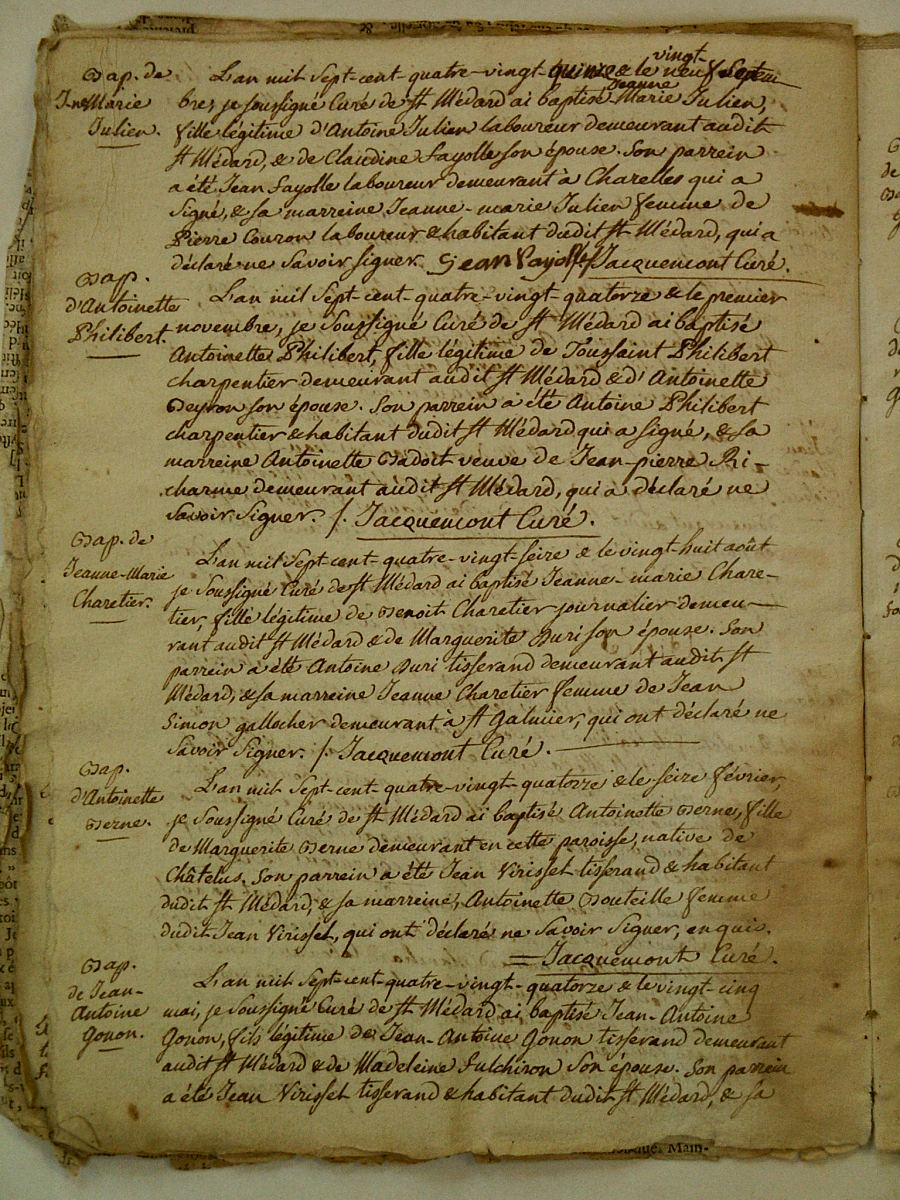 Bap. de
Jne Marie
Julien.
L'an mil Sept-cent-quatre-vingt-quinze & le vingt neuf Septem
bre, je soussigné Curé de St Médard ai baptisé Jeanne Marie Julien,
fille légitime d'Antoine Julien laboureur demeurant audit
St Médard, & de Claudine Fayolle son épouse. Son parrein
a été Jean Fayolle laboureur demeurant à Charelles qui a
Signé, & sa marreine Jeanne-marie Julien femme de
Pierre Couron laboureur & habitant dudit St Médard, qui a
déclaré ne Savoir signer. Jean Fayolle Jacquemont Curé.
Bap.
d'Antoinette
Philibert.
L'an mil Sept-cent-quatre-vingt-quatorze & le premier
novembre, je Soussigné Curé de St Médard ai baptisé
Antoinette Philibert, fille légitime de Toussaint Philibert
charpentier demeurant audit St Médard & d'Antoinette
Peyron son épouse. Son parrein a été Antoine Philibert
charpentier & habitant dudit St Médard qui a signé, & sa
marreine Antoinette Badoit veuve de Jean-pierre Ri-
charme demeurant audit St Médard, qui a déclaré ne
Savoir Signer. /. Jacquemont Curé.
Bap. de
Jeanne-Marie
Charetier.
L'an mil Sept-cent-quatre-vingt-seize & le vingt huit août
je Soussigné Curé de St Médard ai baptisé Jeanne-marie Chare-
tier, fille légitime de Benoit Charetier journalier demeu-
rant audit St Médard & de Marguerite Duri son épouse. Son
parrein a été Antoine Duri tisserand demeurant audit St
Médard, & sa marreine Jeanne Charetier femme de Jean
Simon gallocher demeurant à St Galmier, qui ont déclaré ne
Savoir Signer. /. Jacquemont Curé.
Bap.
d'Antoinette
Berne.
L'an mil Sept-cent-quatre-vingt-quatorze & le seize février,
je Soussigné Curé de St Médard ai baptisé Antoinette Berne, fille
de Marguerite Berne demeurant en cette paroisse, native de
Châtelus. Son parrein a été Jean Virisset tisserand & habitant
dudit St Médard, & sa marreine, Antoinette Bouteille femme
dudit Jean Virisset, qui ont déclaré ne Savoir Signer, enquis.
= Jacquemont Curé.
Bap.
de Jean-
Antoine
Gonon.
L'an mil Sept-cent-quatre-vingt-quatorze & le vingt cinq
mai, je Soussigné Curé de St Médard ai baptisé Jean-Antoine
Gonon, fils légitime de Jean-Antoine Gonon tisserand demeurant
audit St Médard & de Madeleine Fulchiron Son épouse. Son parrein
a été Jean Virisset tisserand & habitant dudit St Médard, & sa